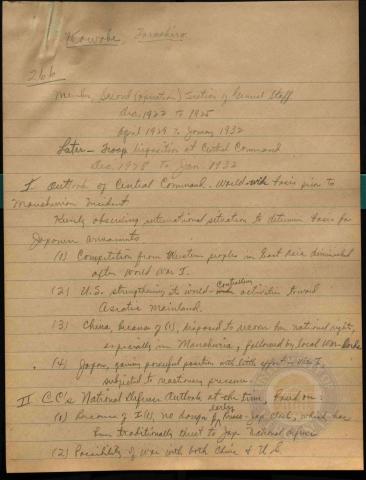 Kawabe, Torashiro
266
Member, Second (Operation) Section of General Staff
Dec. 1922 to 1925
April 1929 to January 1932
Later - Troop Disposition at Central Command
Dec. 1928 to Jan. 1932
I. Outlook of Central Command. World basis prior to
Manchurian Incident
Keenly observing international situation to determine basis for
Japanese armaments
(1) Competition from Western peoples in East Asia diminished
after World War I.
(2) U.S. strengthening its world-controlling activities toward
Asiatic mainland.
(3) China, because of (1), disposed to recover her national rights,
especially in Manchuria, followed by local war-lords
(4) Japan, gaining powerful position with little effort in WW I,
subjected to reactionary pressure.
II C.C.'s National Defense Outlook at the time, based on
(1) Because of I(1), no danger of early Russo-Jap clash, which has
been traditionally threat to Jap national defense
(2) Possibility of war with both China & U.S.